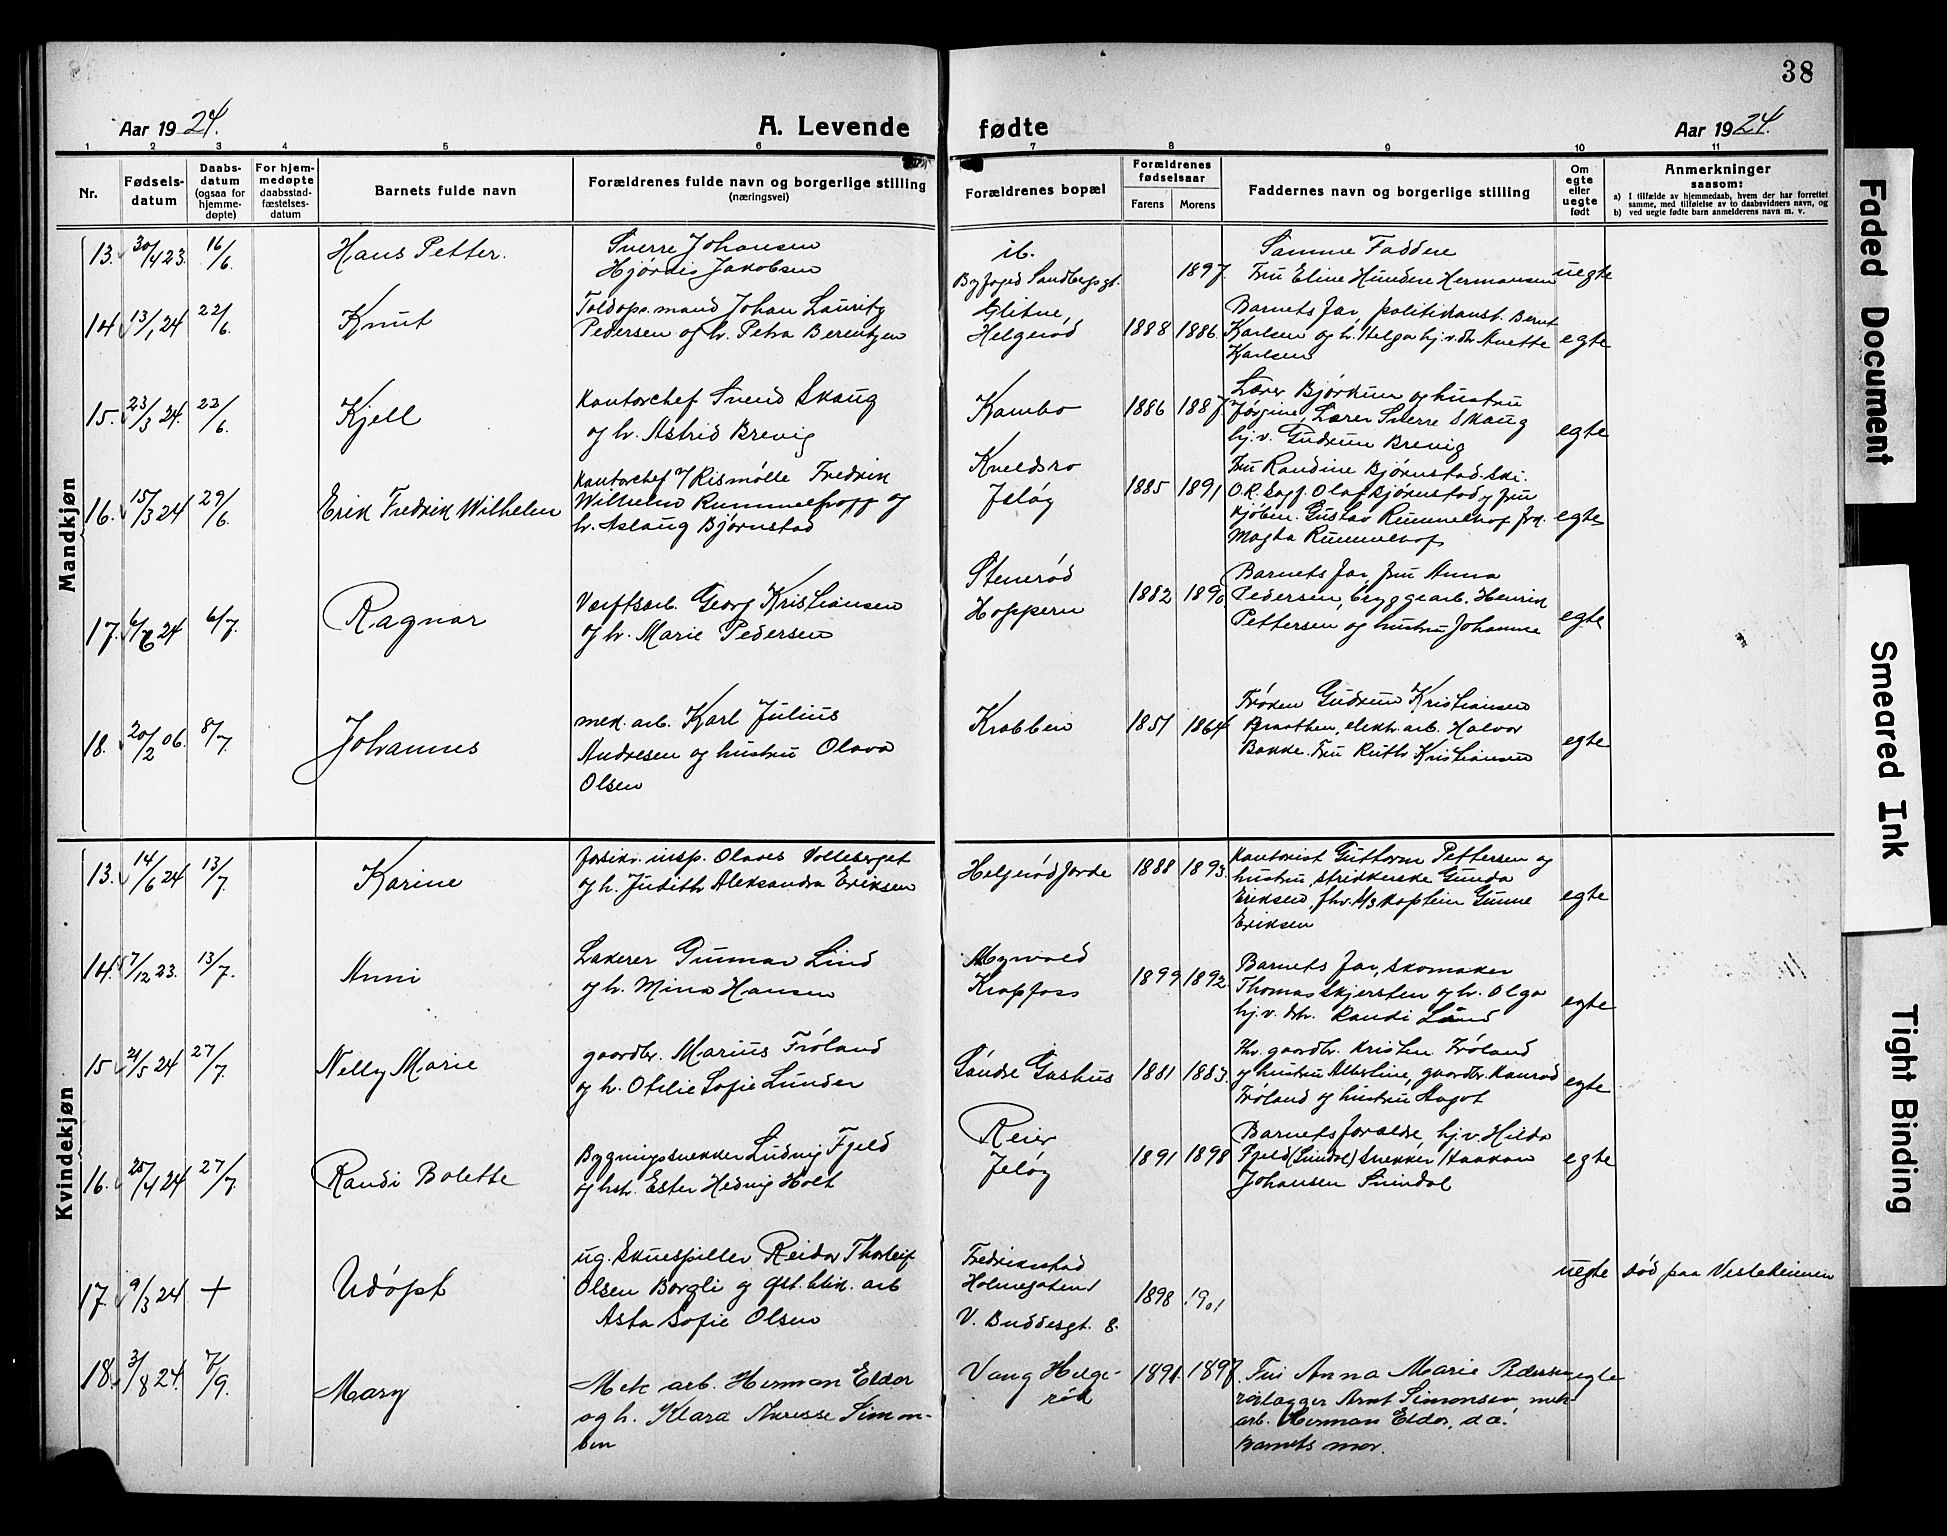 38
Aar 1924.
A. Levende fødte
Aar 1924.
1 2 3 4 5 6 7 8 9 10 11
Nr.
Fødsels-
datum
Daabs-
datum
(ogsaa for
hjemme-
døpte)
For hjem-
medøpte
daabsstad-
fæstelses-
datum
Barnets fulde navn
Forældrenes fulde navn og borgerlige stilling
(næringsvei)
Forældrenes bopæl
Forældrenes
fødselsaar
Farens Morens
Faddernes navn og borgerlige stilling
Om
egte
eller
uegte
født
Anmerkninger
saasom:
a) I tilfælde av hjemmedaab, hvem der har forrettet
samme, med tilføielse av to daabsvidners navn, og
b) ved uegte fødte barn anmelderens navn m. v.
Mandkjøn
13. 30/4 23. 16/6. Hans Petter.
Sverre Johansen
Hjørdis Jakobsen
ib.
Byfoged Sandbergsgt.
1897.
Samme Faddere
Fru Eline Hundere Hermansen
uegte
14 13/1 24 22/6. Knut
Toldops.mand Johan Lauritz
Pedersen og h. Petra Berentzen
Glitne,
Helgerød
1888 1886.
Barnets far, politikonst. Bernt
Karlsen og h. Helga hj.v. dtr. Anette
Karlsen
egte
15. 23/3 24. 22/6. Kjell
Kontorchef Svend Skaug
og h. Astrid Brevig
Kambo
1886 1887.
Lærer Bjørkum og hustru
Jørgine, Lærer Sverre Skaug
hj.v. Gudrun Brevig
egte
16. 15/3 24 29/6. Erik Fredrik Wilhelm
Kontorchef v/ Rismølle Fredrik
Wilhelm Rummelhoff og
h. Aslaug Bjørnstad
Kveldsro
Jeløy
1885 1891
Fru Randine Bjørnstad. Ski.
O.R. Sagf. Olaf Bjørnstad og fru
kjøbm. Gustav Rummelhof frk.
Magta Rummelhof
egte
17. 6/6 24 6/7. Ragnar
Værftsarb. Georg Kristiansen
og h. Marie Pedersen
Stenerød
Hoppern
1882 1890.
Barnets far, fru Anna
Pedersen, bryggearb. Henrik
Pettersen og hustru Johanne
egte
18. 20/2 06. 8/7. Johannes
mek. arb. Karl Julius
Andresen og hustru Olava
Olsen
Krabben
1851 1864
Frøken Gudrun Kristiansen
Braathen, elektr. arb. Halvor
Bakke. Fru Ruth Kristiansen
egte
Kvindekjøn
13. 14/6 24 13/7. Karine
forsikr. insp. Olaves Volleberget
og h. Judith Aleksandra Eriksen
Helgerød Jorde
1888 1893.
Kontorist Guttorm Pettersen og
hustru, strikkerske Gunda
Eriksen, fhv. D/S kaptein Gunne
Eriksen
egte
14. 7/12 23. 13/7. Anni
Lakerer Gunnar Lind
og h. Mina Hansen
Myrvold
Krapfoss
1899 1892.
Barnets far, skomaker
Thomas Skjersten og h. Olga
hj.v. dtr. Randi Lund
egte
15 21/5 24 27/7. Nelly Marie
gaardbr. Marius Frøland
og h. Otilie Sofie Lunder
Søndre Gashus
1881 1883.
Fhv. gaardbr. Kristen Frøland
og hustru Albertine, gaardbr. Konrad
Frøland og hustru Aagot
egte
16. 25/4 24 27/7. Randi Bolette
Bygningssnekker Ludvig Fjeld
og hstr. Ester Hedvig Holt
Reier
Jeløy
1891 1898
Barnets forældre, hj.v. Hilda
Fjeld (Sundal) snekker Haakon
Johansen Sundal
egte
17. 9/3 24 + Udøpt
ug. Skuespiller Reidar Thorleif
Olsen Borgli og gft. blik. arb
Asta Sofie Olsen
Fredrikstad
Holmegaten 1
V. Buddesgt. 8.
1898 1901
uegte
død paa Vestheimen
18. 3/8 24. 7/9. Mary
Mek arb. Herman Elder
og h. Klara Therese Simon-
sen
Vang Helge-
rød
1891. 1897.
Fru Anna Marie Pedersen
rørlægger Arnt Simonsen, mek
arb. Herman Elder, d.a.
Barnets mor.
egte
Faded Document
Smeared Ink
Tight Binding